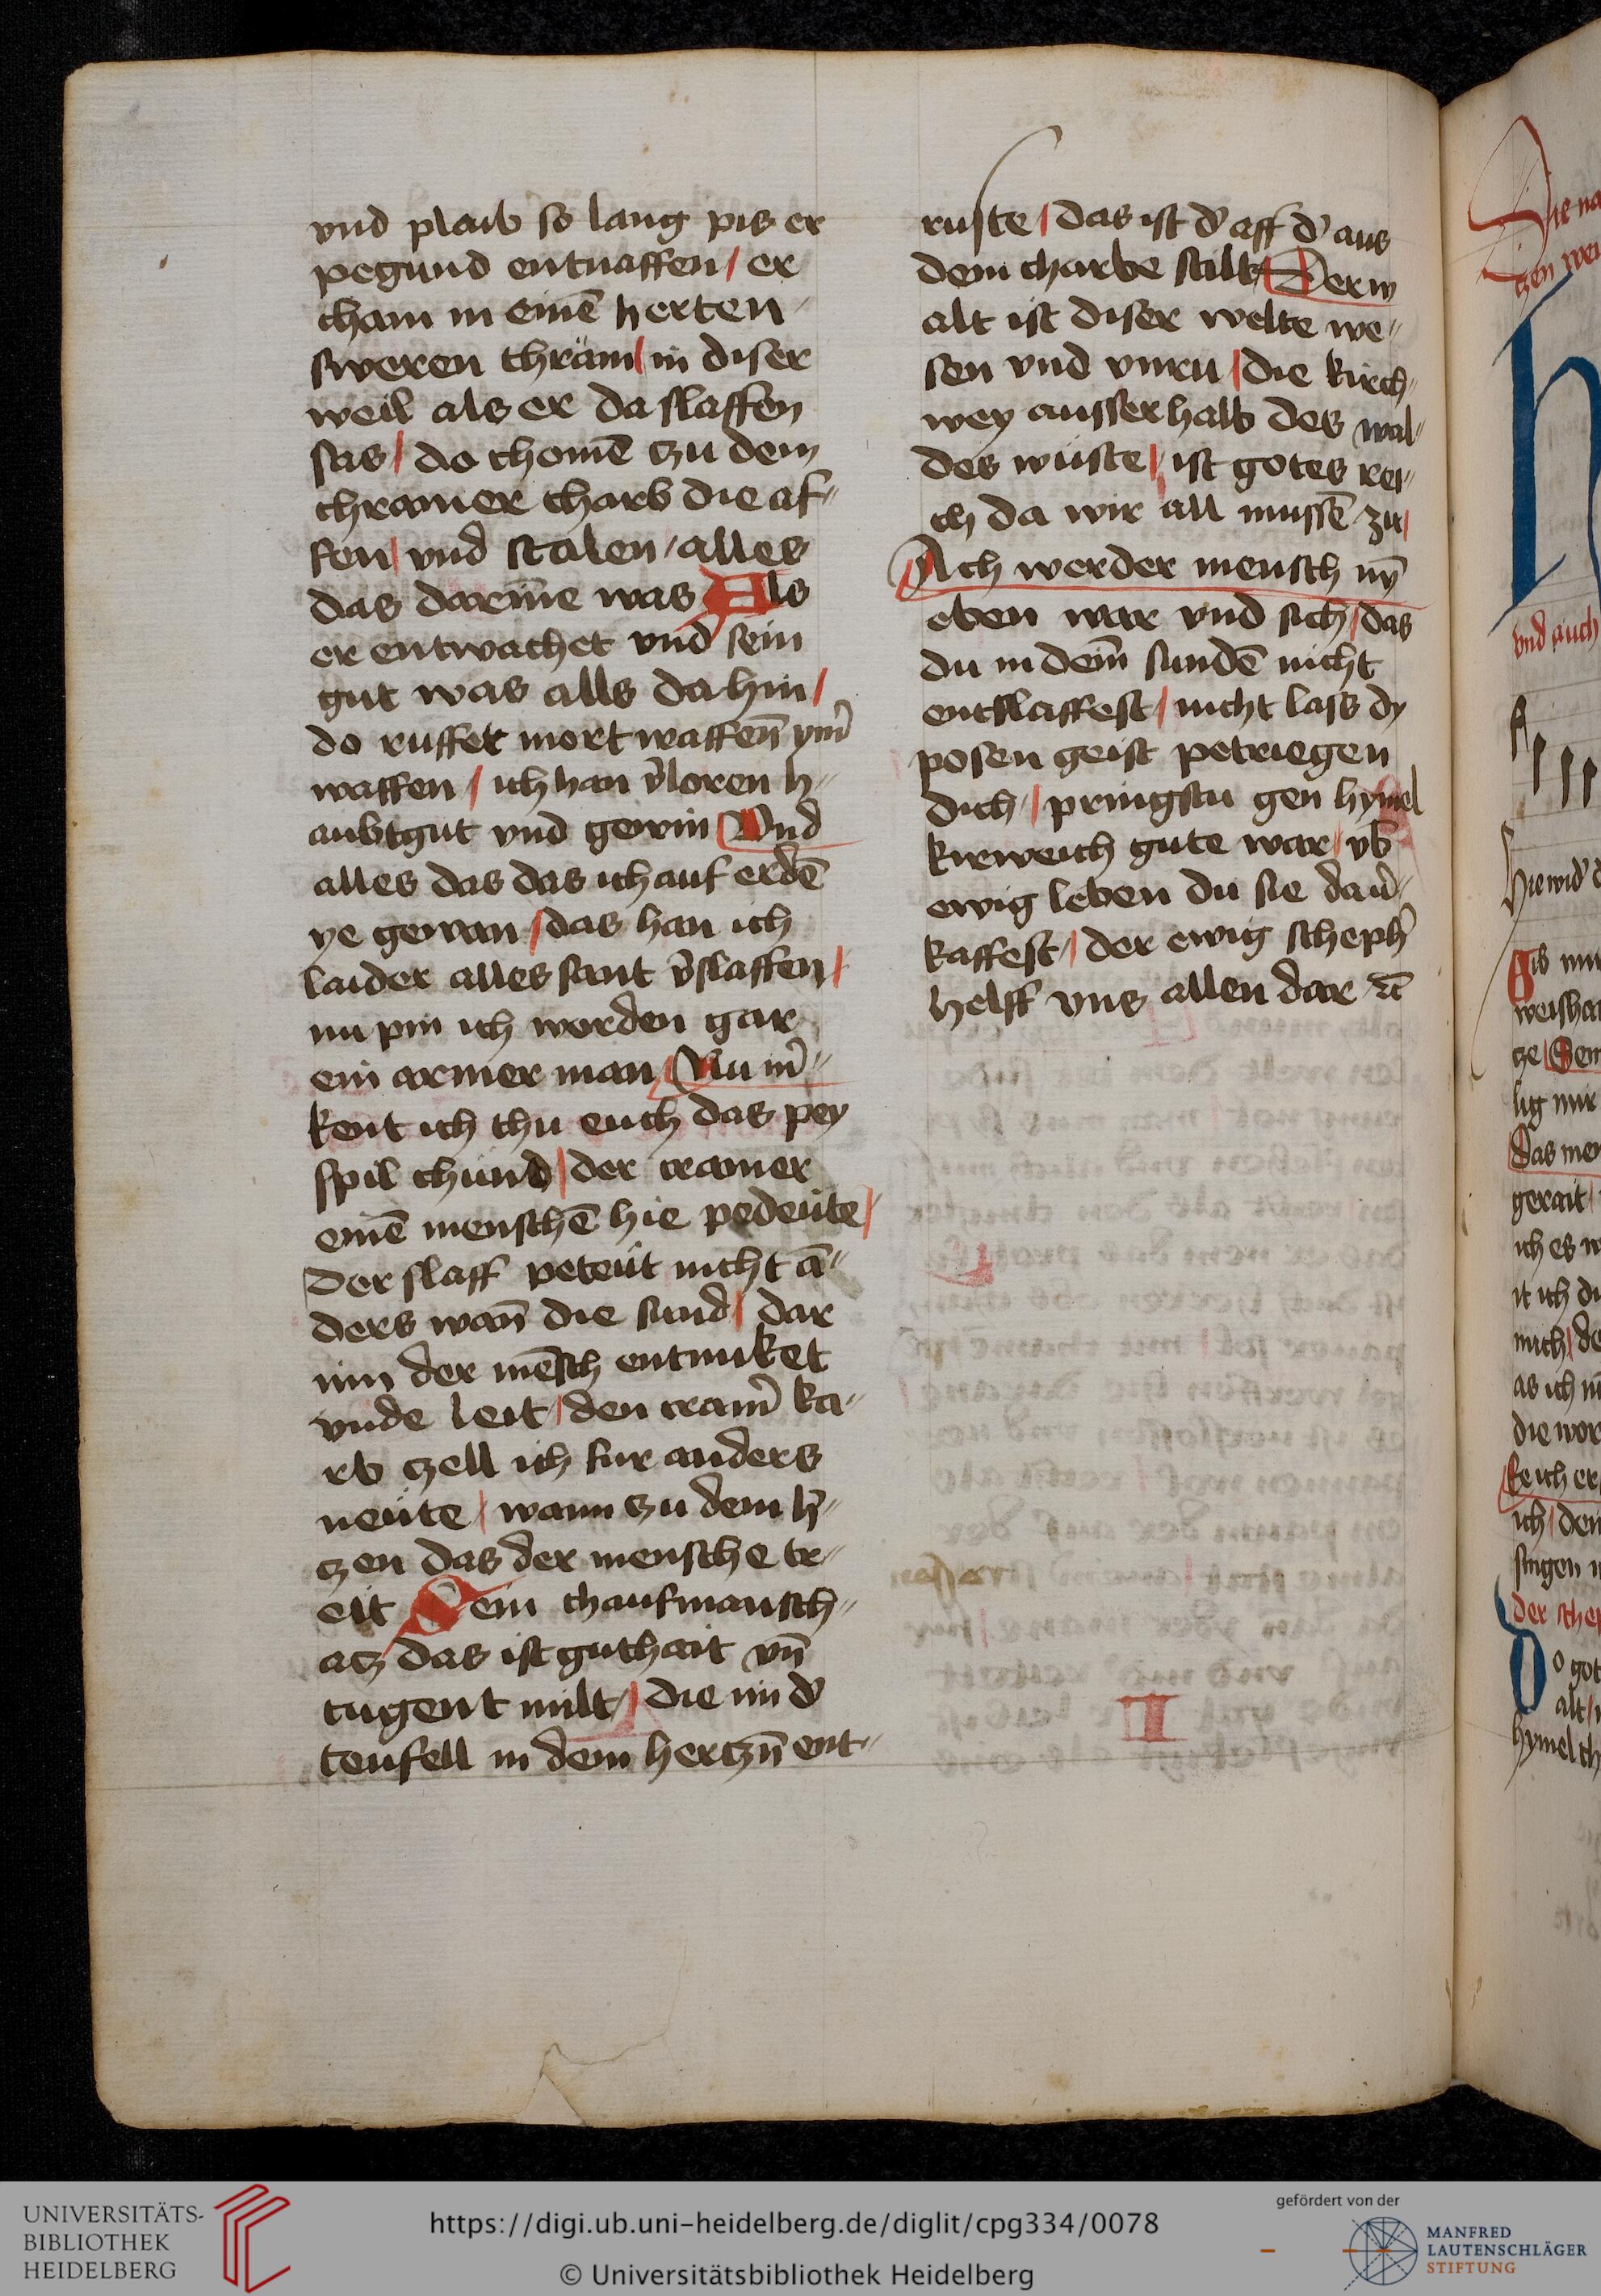 vnd plaib so lang pis er
pegund entnaffen / er
cham in eine͂ herten
sweren thräm / in diser
weil als er da slaffen
sas / do chome͂ zu dem
chramer charb die af⸗
fen / vnd stalen / alles
das darin͂e was Als
er entwachet vnd sein
gut was alls da hin /
do ruffet mort waffen͂ ym̉
waffen / ich han v̉loren h⸗
aubtgut vnd gewin Vnd
alles das das ich auf erde͂
ye gewan / das han ich
laider alles sant v̉slaffen /
nu pin ich worden gar
ein armer man / Nu m̉⸗
kent ich thu euch das pey
spil chund / der cramer
eine͂ mensche͂ hie pedeüte /
Der slaff peteüt nicht a͂⸗
ders wan͂ die sund / dar
inn der me͂sch entnuket
vnde leit / den cram̉ ka⸗
rb zell ich fur anders
neüte / wann zu dem h̉⸗
czen das der mensche tr⸗
eit Sein chaufmansch⸗
acz das ist guthait vn͂
tugent milt / die im d̉
teufell in dem herczn͂ ent⸗
ruste / das ist d̉ aff d̉ aus
dem charbe stilt Der w
alt ist diser welte we⸗
sen vnd vnru / die kirch⸗
wey ausserhalb des wal⸗
des wüste / ist gotes rei⸗
ch da wir all musse͂ zu /
Ach werder mensch ny͂
eben war vnd sich / das
du in dein͂ sunde͂ nicht
entslaffest / nicht lass dy
posen geist petriegen
dich / pringstu gen hymel
kirweich gute war / vb̉
ewig leben du sie dan̉⸗
kaffest / der ewig scheph̉
helff vns allen dar ꝛc͂
I
Die na
czen wei
vnd auch
Hie wid̉ d
Gib mir
weishai
cze Dem
lig mir
Das me
gerait /
ich es w
it ich du
mich / de
as ich m
die wor
ke ich er
ich / den
singen
der sche
O got
alt /
hymel ch
UNIVERSITÄTS-
BIBLIOTHEK
HEIDELBERG
https://digi.ub.uni-heidelberg.de/diglit/cpg334/0078
© Universitätsbibliothek Heidelberg
gefördert von der
MANFRED
LAUTENSCHLÄGER
STIFTUNG